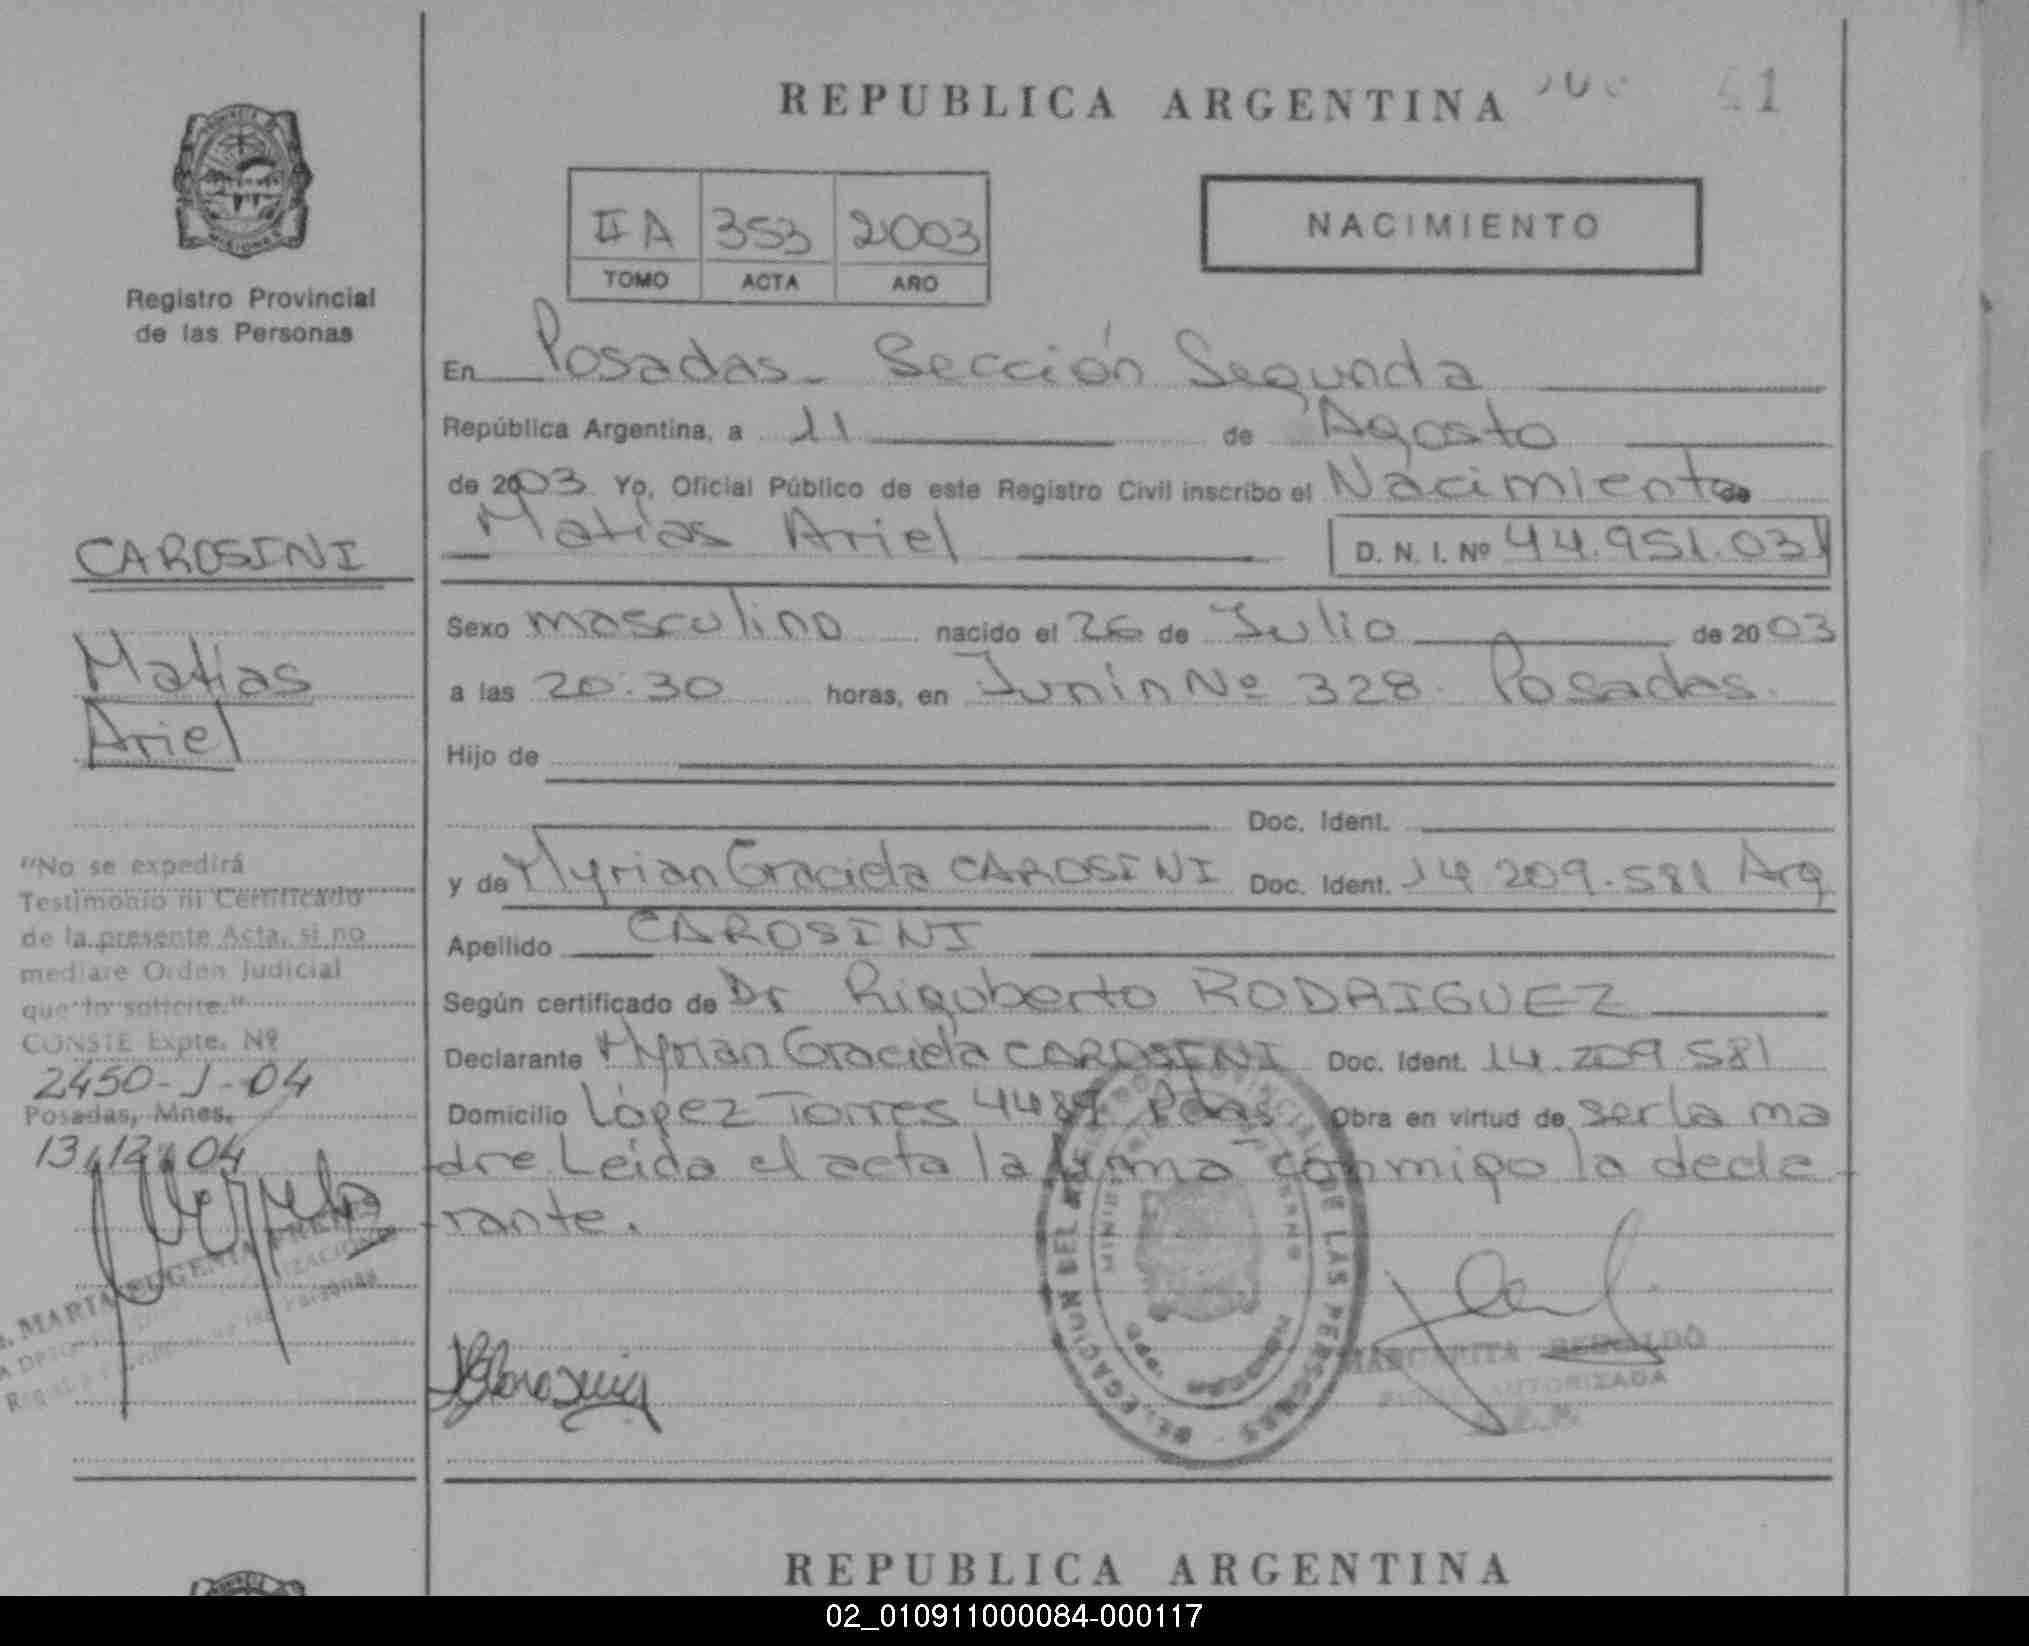 REPUBLICA ARGENTINA
41
PROVINCIA DE
MISIONES
Registro Provincial
de las Personas
II A 353 2003
TOMO ACTA AÑO
NACIMIENTO
En Posadas - Sección Segunda
República Argentina, a 11 de Agosto
de 2003 Yo, Oficial Público de este Registro Civil inscribo el Nacimiento de
Matías Ariel D. N. I. Nº 44.951.031
CAROSINI
Sexo masculino nacido el 26 de Julio de 2003
Matías
a las 20:30 horas, en Junín Nº 328. Posadas.
Ariel
Hijo de
Doc. Ident.
"No se expedirá
Testimonio ni Certificado
de la presente Acta, si no
mediare Orden Judicial
que lo solicite."
CONSTE Expte. Nº
2450-J-04
Posadas, Mnes.
13/12/04
y de Myrian Graciela CAROSINI Doc. Ident. 14 209.581 Arg
Apellido CAROSINI
Según certificado de Dr Rigoberto RODRIGUEZ
Declarante Myrian Graciela CAROSINI Doc. Ident. 14.209 581
Domicilio López Torres 4489 Pdas Obra en virtud de ser la ma
dre. Leída el acta la firma conmigo la decla
rante.
MARIA EUGENIA
DELEGACION DEL REGISTRO PROVINCIAL DE LAS PERSONAS
MARGARITA
FIRMA AUTORIZADA
REPUBLICA ARGENTINA
02_010911000084-000117